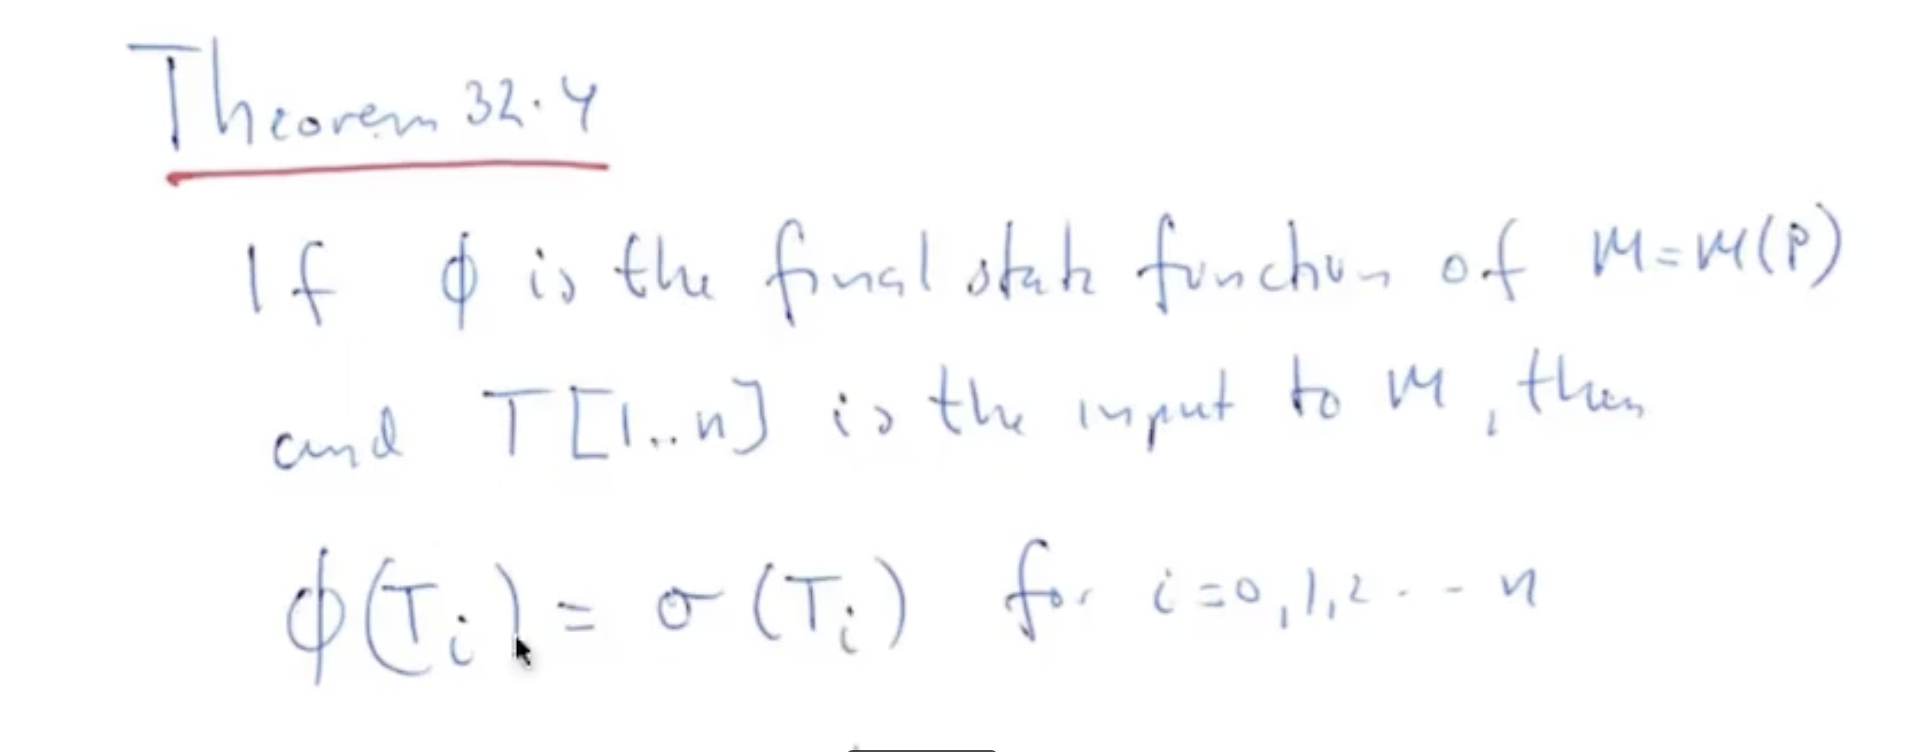 Theorem 32.4
If ϕ is the final state function of M=M(P)
and T[1..n] is the input to M, then
ϕ(Tᵢ) = σ(Tᵢ) for i=0,1,2...n